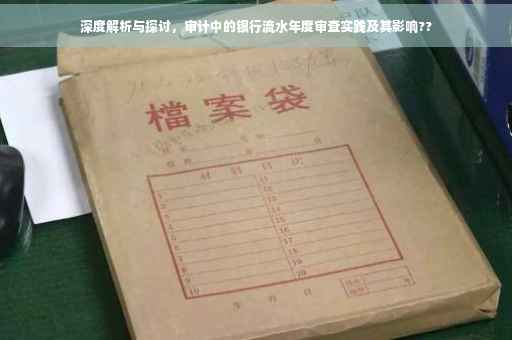 深度解析与探讨，审计中的银行流水年度审查实践及其影响??
檔案袋
材料目次
1 11
2 12
3 13
4 14
5 15
6 16
7 17
8 18
9 19
10 20
年 月 日